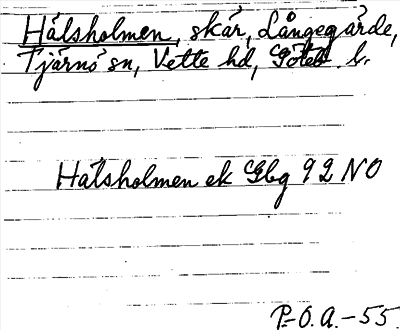 Hälsholmen, skär, Långegärde,
Tjärnö sn, Vette hd, Göteb. l.
Hälsholmen ek Gbg 92 NO
P.-O.A.-55.